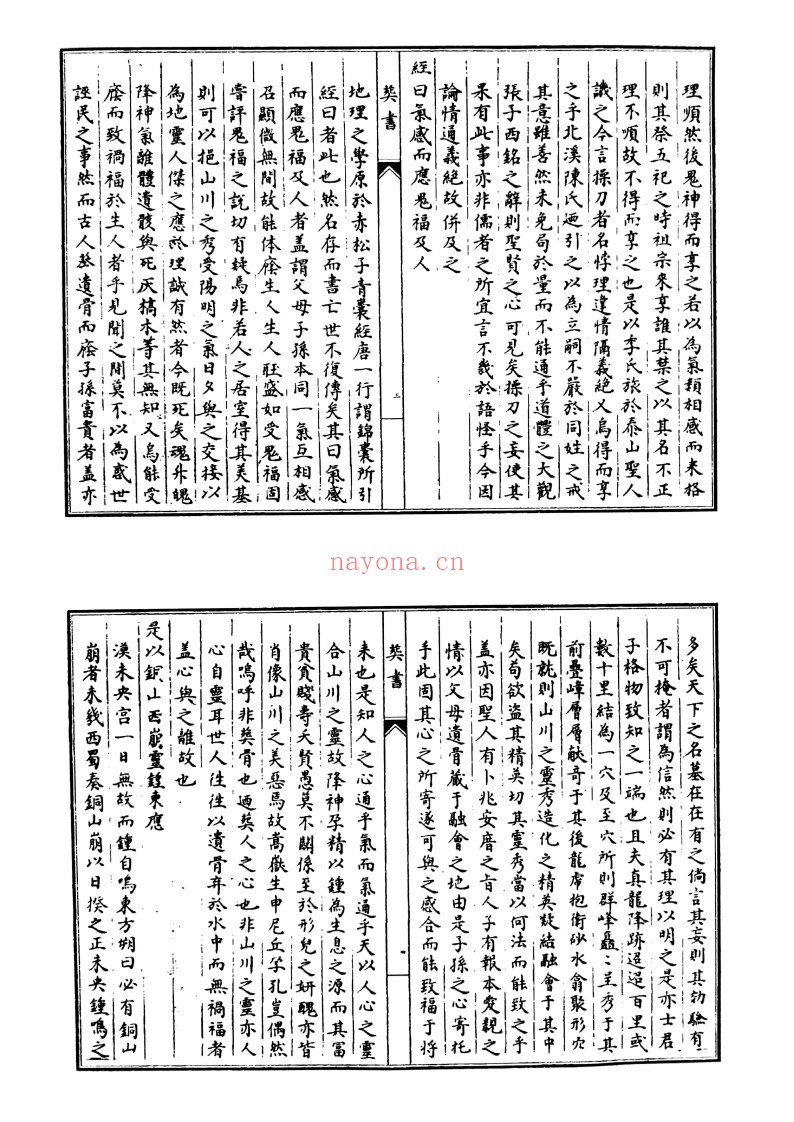 理順然後鬼神得而享之若以為氣類相感而来格
則其祭五祀之時祖宗來享誰其禁之以其名不正
理不順故不得而享之也是以李氏旅於泰山聖人
譏之今言操刀者名悖理違情隔義絶又烏得而享
之乎北溪陳氏廼引之以為立嗣不嚴於同姓之戒
其意雖善然未免局於量而不能通乎道體之大觀
張子西銘之解則聖賢之心可見矣操刀之妄使其
果有此事亦非儒者之所宜言不幾於語怪乎今因
論情通義絶故併及之
經曰氣感而應鬼福及人
葬書
二
地理之學原於赤松子青囊經唐一行謂錦囊所引
經曰者此也然名存而書亡世不復傳矣其曰氣感
而應鬼福及人者盖謂父母子孫本同一氣互相感
召顯微無間故能体廕生人生人旺盛如受鬼福固
嘗評鬼福之説切有疑焉非若人之居室得其美基
則可以挹山川之秀受陽明之氣日夕與之交接以
為地靈人傑之應於理誠有然者今既死矣魂升魄
降神氣離體遺骸與死灰槁木等其無知又烏能受
廕而致禍福於生人者乎見聞之間莫不以為惑世
誣民之事然而古人塟遺骨而廕子孫富貴者盖亦
多矣天下之名墓在在有之倘言其妄則其効驗有
不可掩者謂為信然則必有其理以明之是亦士君
子格物致知之一端也且夫真龍降跡迢迢百里或
數十里結為一穴及至穴所則群峰矗〻呈秀于其
前疊嶂層層獻奇于其後龍虎抱衛砂水翕聚形穴
既就則山川之靈秀造化之精英凝結融會于其中
矣苟欲盗其精英切其靈秀當以何法而能致之乎
盖亦因聖人有卜兆安厝之旨人子有報本愛親之
情以父母遺骨藏于融會之地由是子孫之心寄托
乎此固其心之所寄遂可與之感合而能致福于將
葬書
来也是知人之心通乎氣而氣通乎天以人心之靈
合山川之靈故降神孕精以鍾為生息之源而其富
貴貧賤壽夭賢愚莫不關係至於形皃之妍醜亦皆
肖像山川之美惡焉故嵩嶽生申尼丘孕孔豈偶然
哉嗚呼非葬骨也廼葬人之心也非山川之靈亦人
心自靈耳世人徃徃以遺骨弃於水中而無禍福者
盖心與之離故也
是以銅山西崩靈鍾東應
漢未央宫一日無故而鍾自鳴東方朔曰必有銅山
崩者未幾西蜀奏銅山崩以日揆之正未央鍾鳴之
nayona.cn